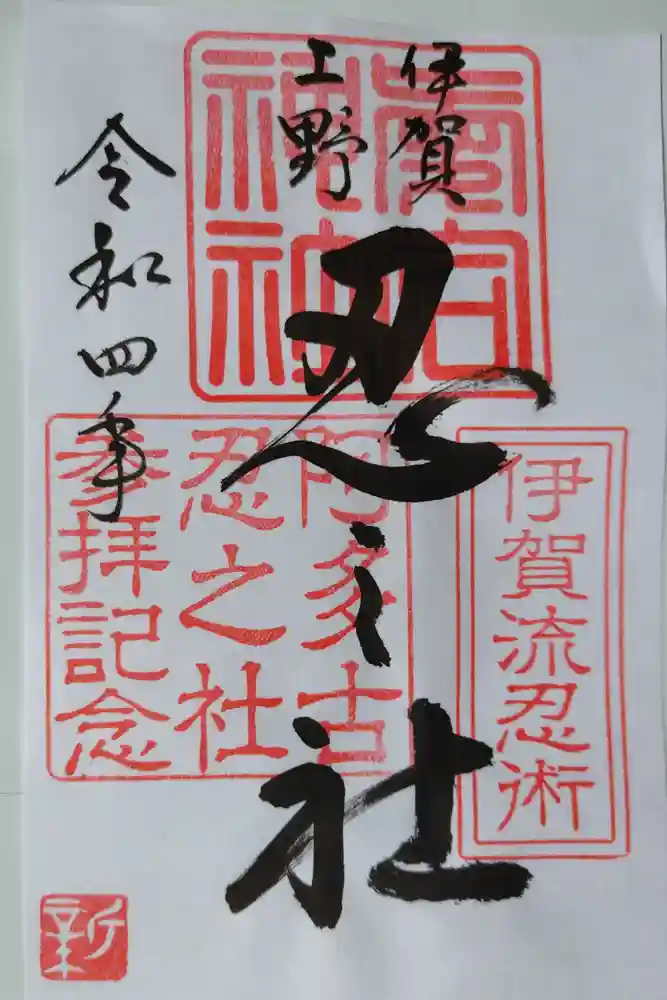 伊賀
上野
忍之社
令和四年
愛宕
神社
伊賀流忍術
阿多古
忍之社
参拝記念
新